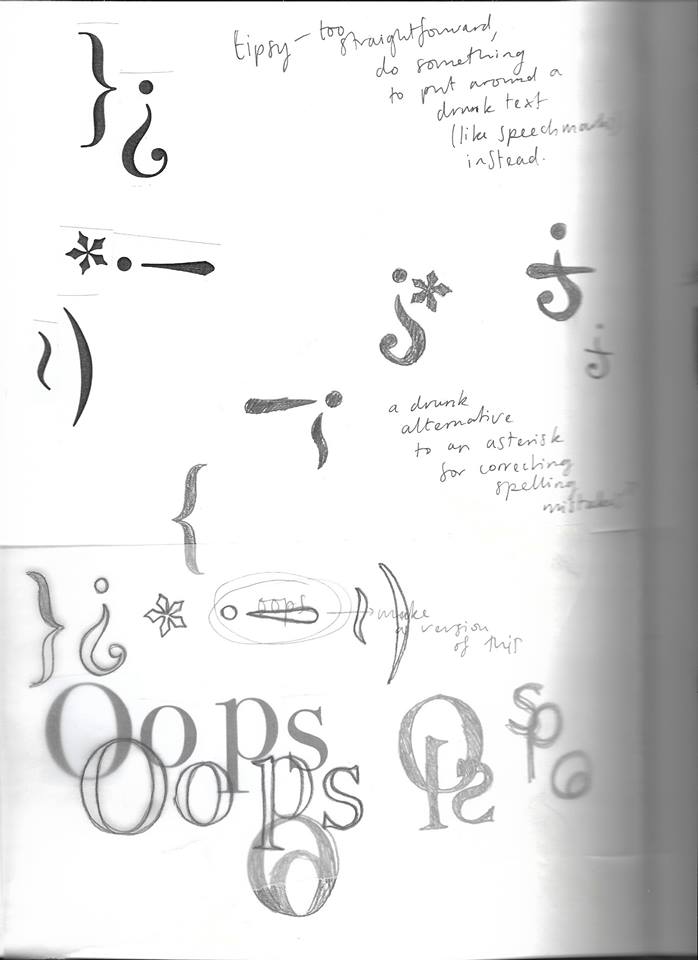 }¿
tipsy – too
straightforward,
do something
to put around a
drunk text
(like speechmarks)
instead.
*•–
~)
a drunk
alternative
to an asterisk
for correcting
spelling
mistakes?
{
}¿ * oops ~)
make
a version
of this
Oops
Oops